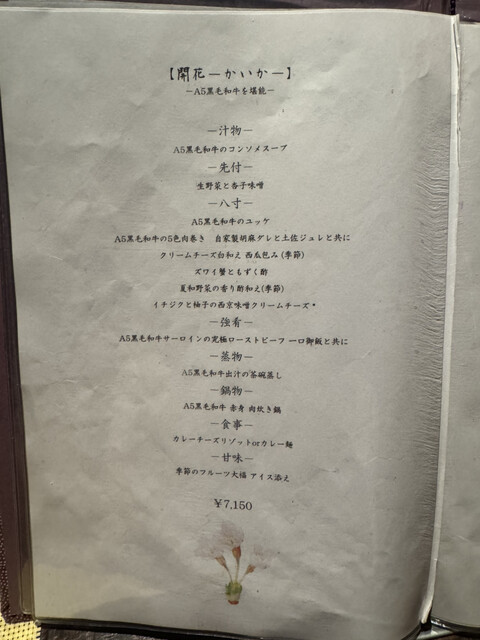 【開花―かいか―】
―A5黒毛和牛を堪能―
―汁物―
A5黒毛和牛のコンソメスープ
―先付―
生野菜と杏子味噌
―八寸―
A5黒毛和牛のユッケ
A5黒毛和牛の5色肉巻き 自家製胡麻ダレと土佐ジュレと共に
クリームチーズ白和え 西瓜包み(季節)
ズワイ蟹ともずく酢
夏和野菜の香り酢和え(季節)
イチジクと柚子の西京味噌クリームチーズ*
―強肴―
A5黒毛和牛サーロインの究極ローストビーフ 一口御飯と共に
―蒸物―
A5黒毛和牛出汁の茶碗蒸し
―鍋物―
A5黒毛和牛 赤身 肉炊き鍋
―食事―
カレーチーズリゾットorカレー麺
―甘味―
季節のフルーツ大福 アイス添え
¥7,150